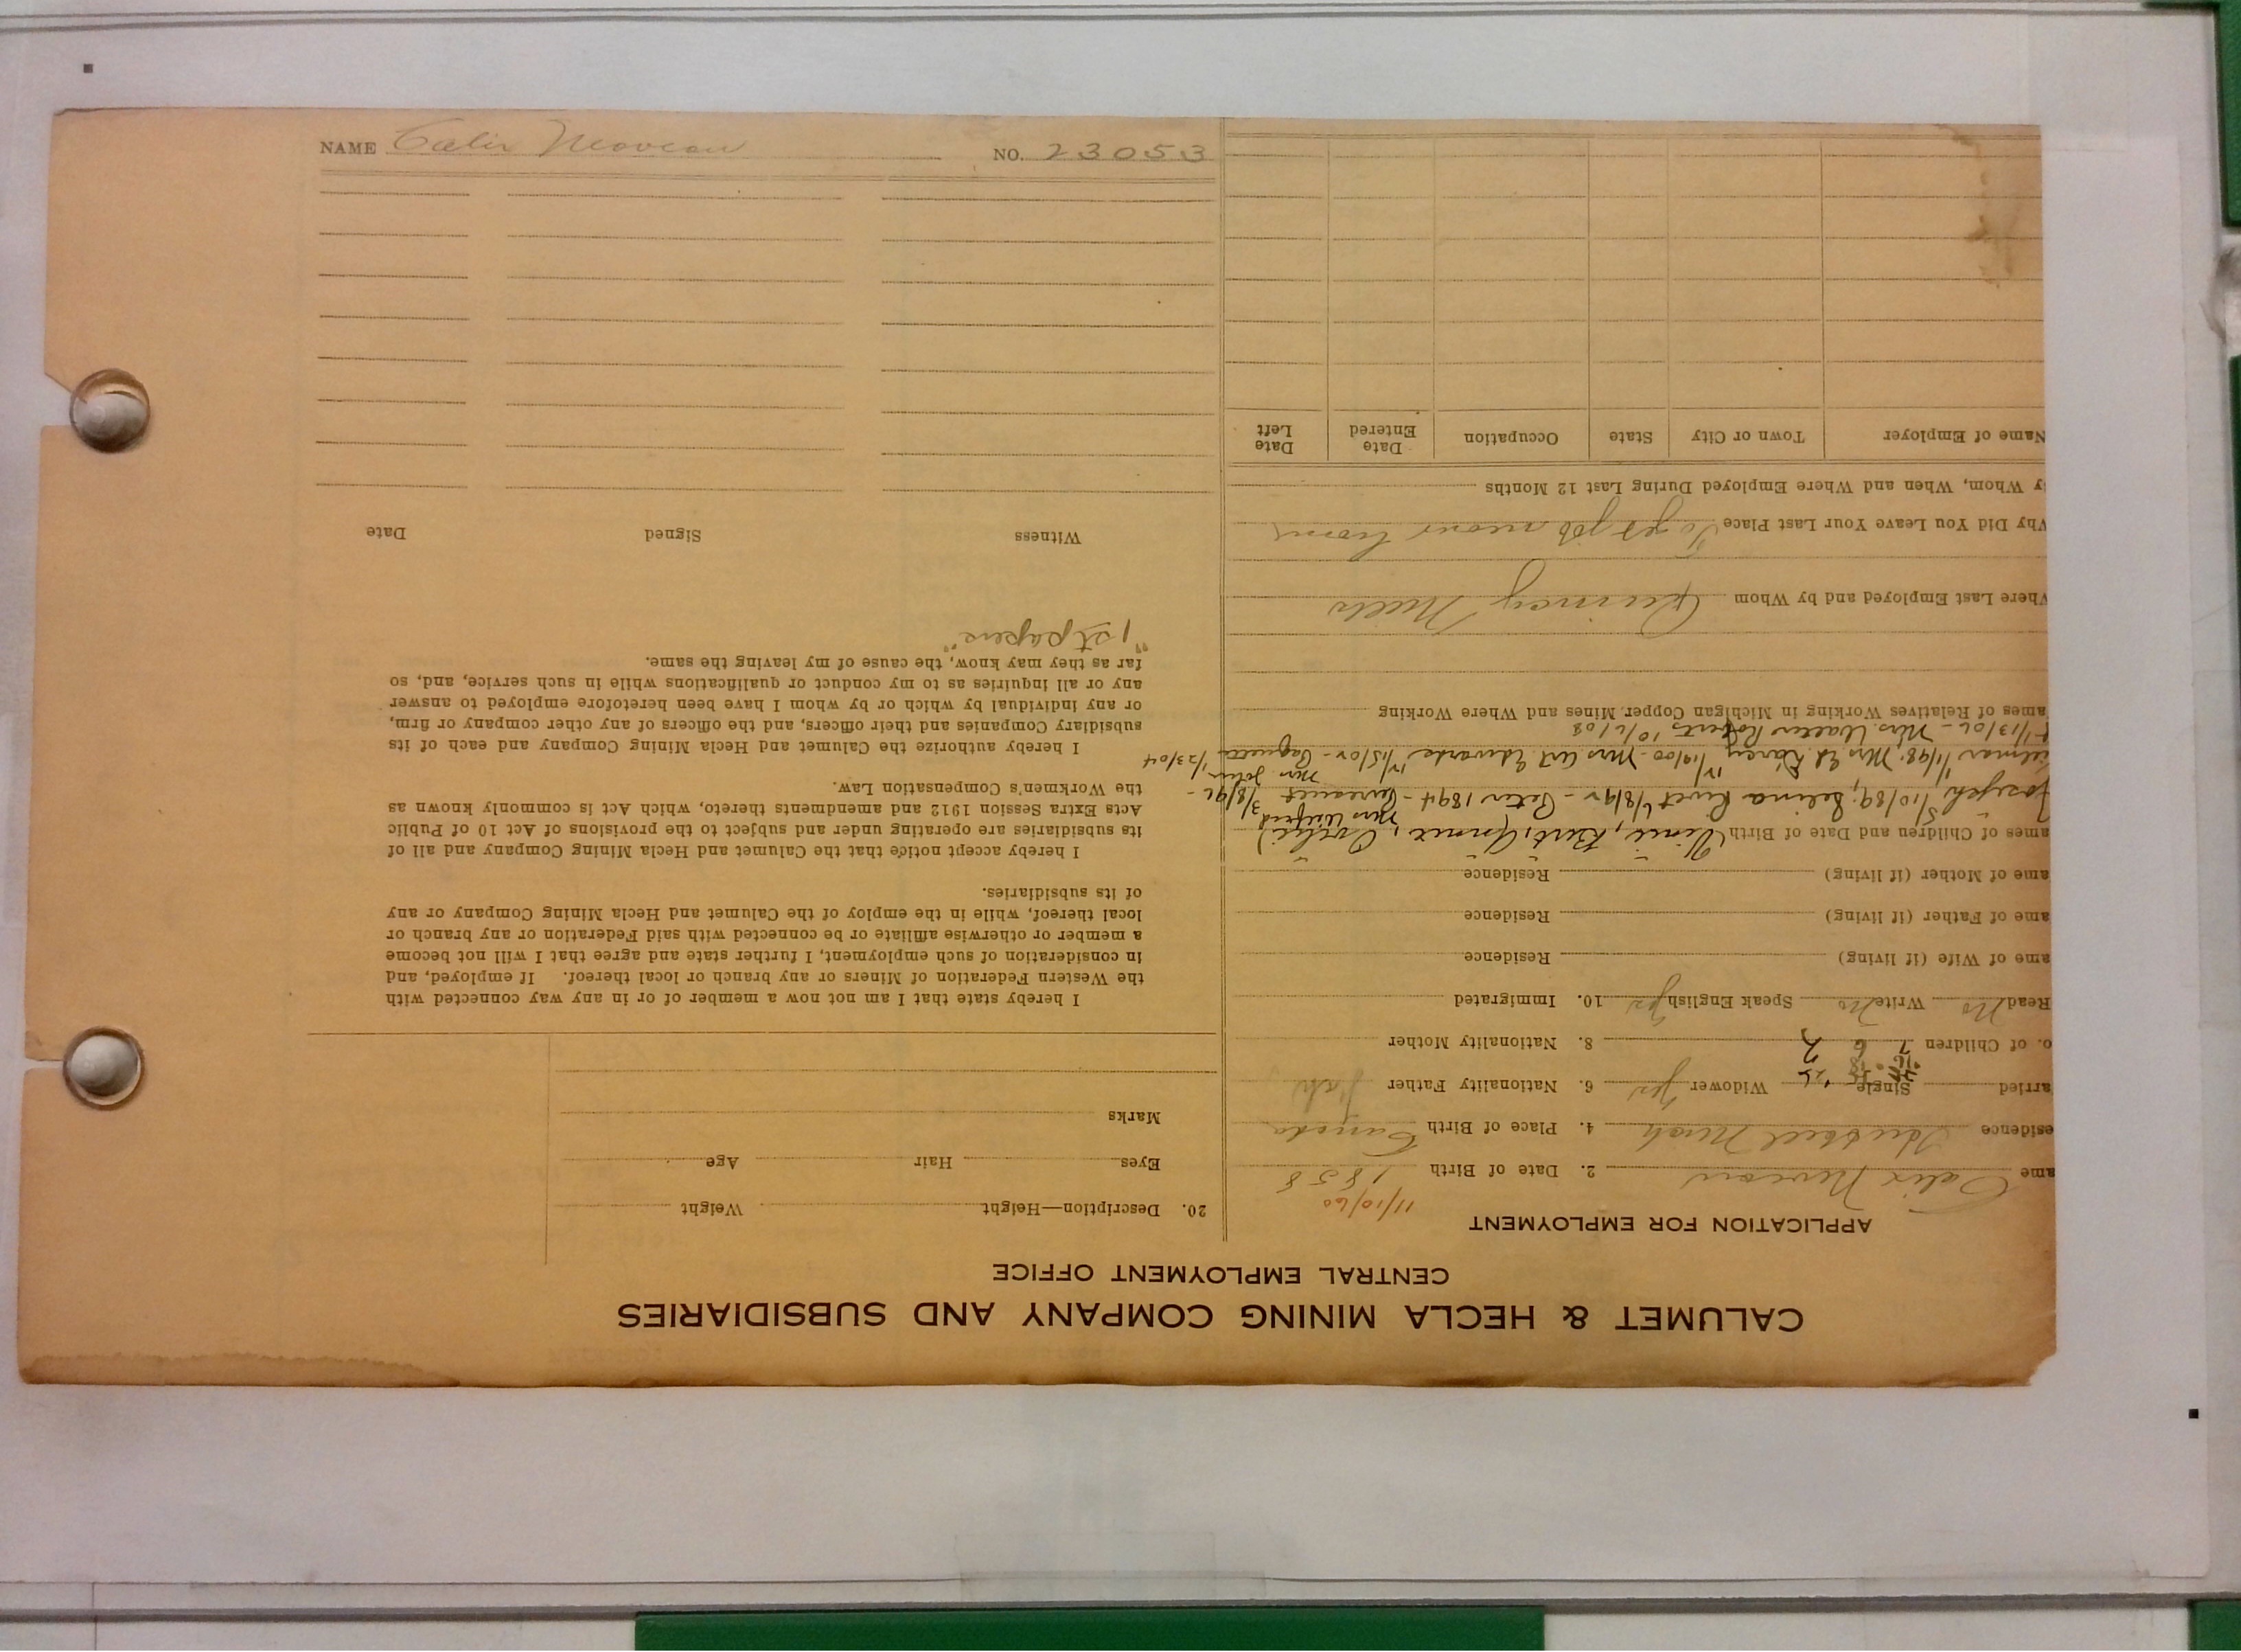 NAME Calix Moveau NO. 23053
CALUMET & HECLA MINING COMPANY AND SUBSIDIARIES
CENTRAL EMPLOYMENT OFFICE
APPLICATION FOR EMPLOYMENT
11/10/60
ame Calix 2. Date of Birth 1858
esidence Hubbell Mich 4. Place of Birth Canada
arried Single Widower Yes 6. Nationality Father
o. of Children 7 6 2 8. Nationality Mother
Read No Write No Speak English Yes 10. Immigrated
ame of Wife (if living) Residence
ame of Father (if living) Residence
ame of Mother (if living) Residence
ames of Children and Date of Birth
Joseph 5/10/89; Selina Rivet 6/8/92 - Peter 1894 - Mrs Wilfred 3/8/96 -
1/1/98; Mrs Ed. 12/19/00 - Mrs Art Edwards 12/15/02 - Mrs. John 1/23/04
1/13/06 - Mrs. Walter Roberts 10/6/08
ames of Relatives Working in Michigan Copper Mines and Where Working
here Last Employed and by Whom Quincy Mills
hy Did You Leave Your Last Place To get job nearer home
y Whom, When and Where Employed During Last 12 Months
Name of Employer Town or City State Occupation Date Entered Date Left
20. Description—Height Weight
Eyes Hair Age
Marks
I hereby state that I am not now a member of or in any way connected with
the Western Federation of Miners or any branch or local thereof. If employed, and
in consideration of such employment, I further state and agree that I will not become
a member or otherwise affiliate or be connected with said Federation or any branch or
local thereof, while in the employ of the Calumet and Hecla Mining Company or any
of its subsidiaries.
I hereby accept notice that the Calumet and Hecla Mining Company and all of
its subsidiaries are operating under and subject to the provisions of Act 10 of Public
Acts Extra Session 1912 and amendments thereto, which Act is commonly known as
the Workmen's Compensation Law.
I hereby authorize the Calumet and Hecla Mining Company and each of its
subsidiary Companies and their officers, and the officers of any other company or firm,
or any individual by which or by whom I have been heretofore employed to answer
any or all inquiries as to my conduct or qualifications while in such service, and, so
far as they may know, the cause of my leaving the same.
"1st papers"
Witness Signed Date